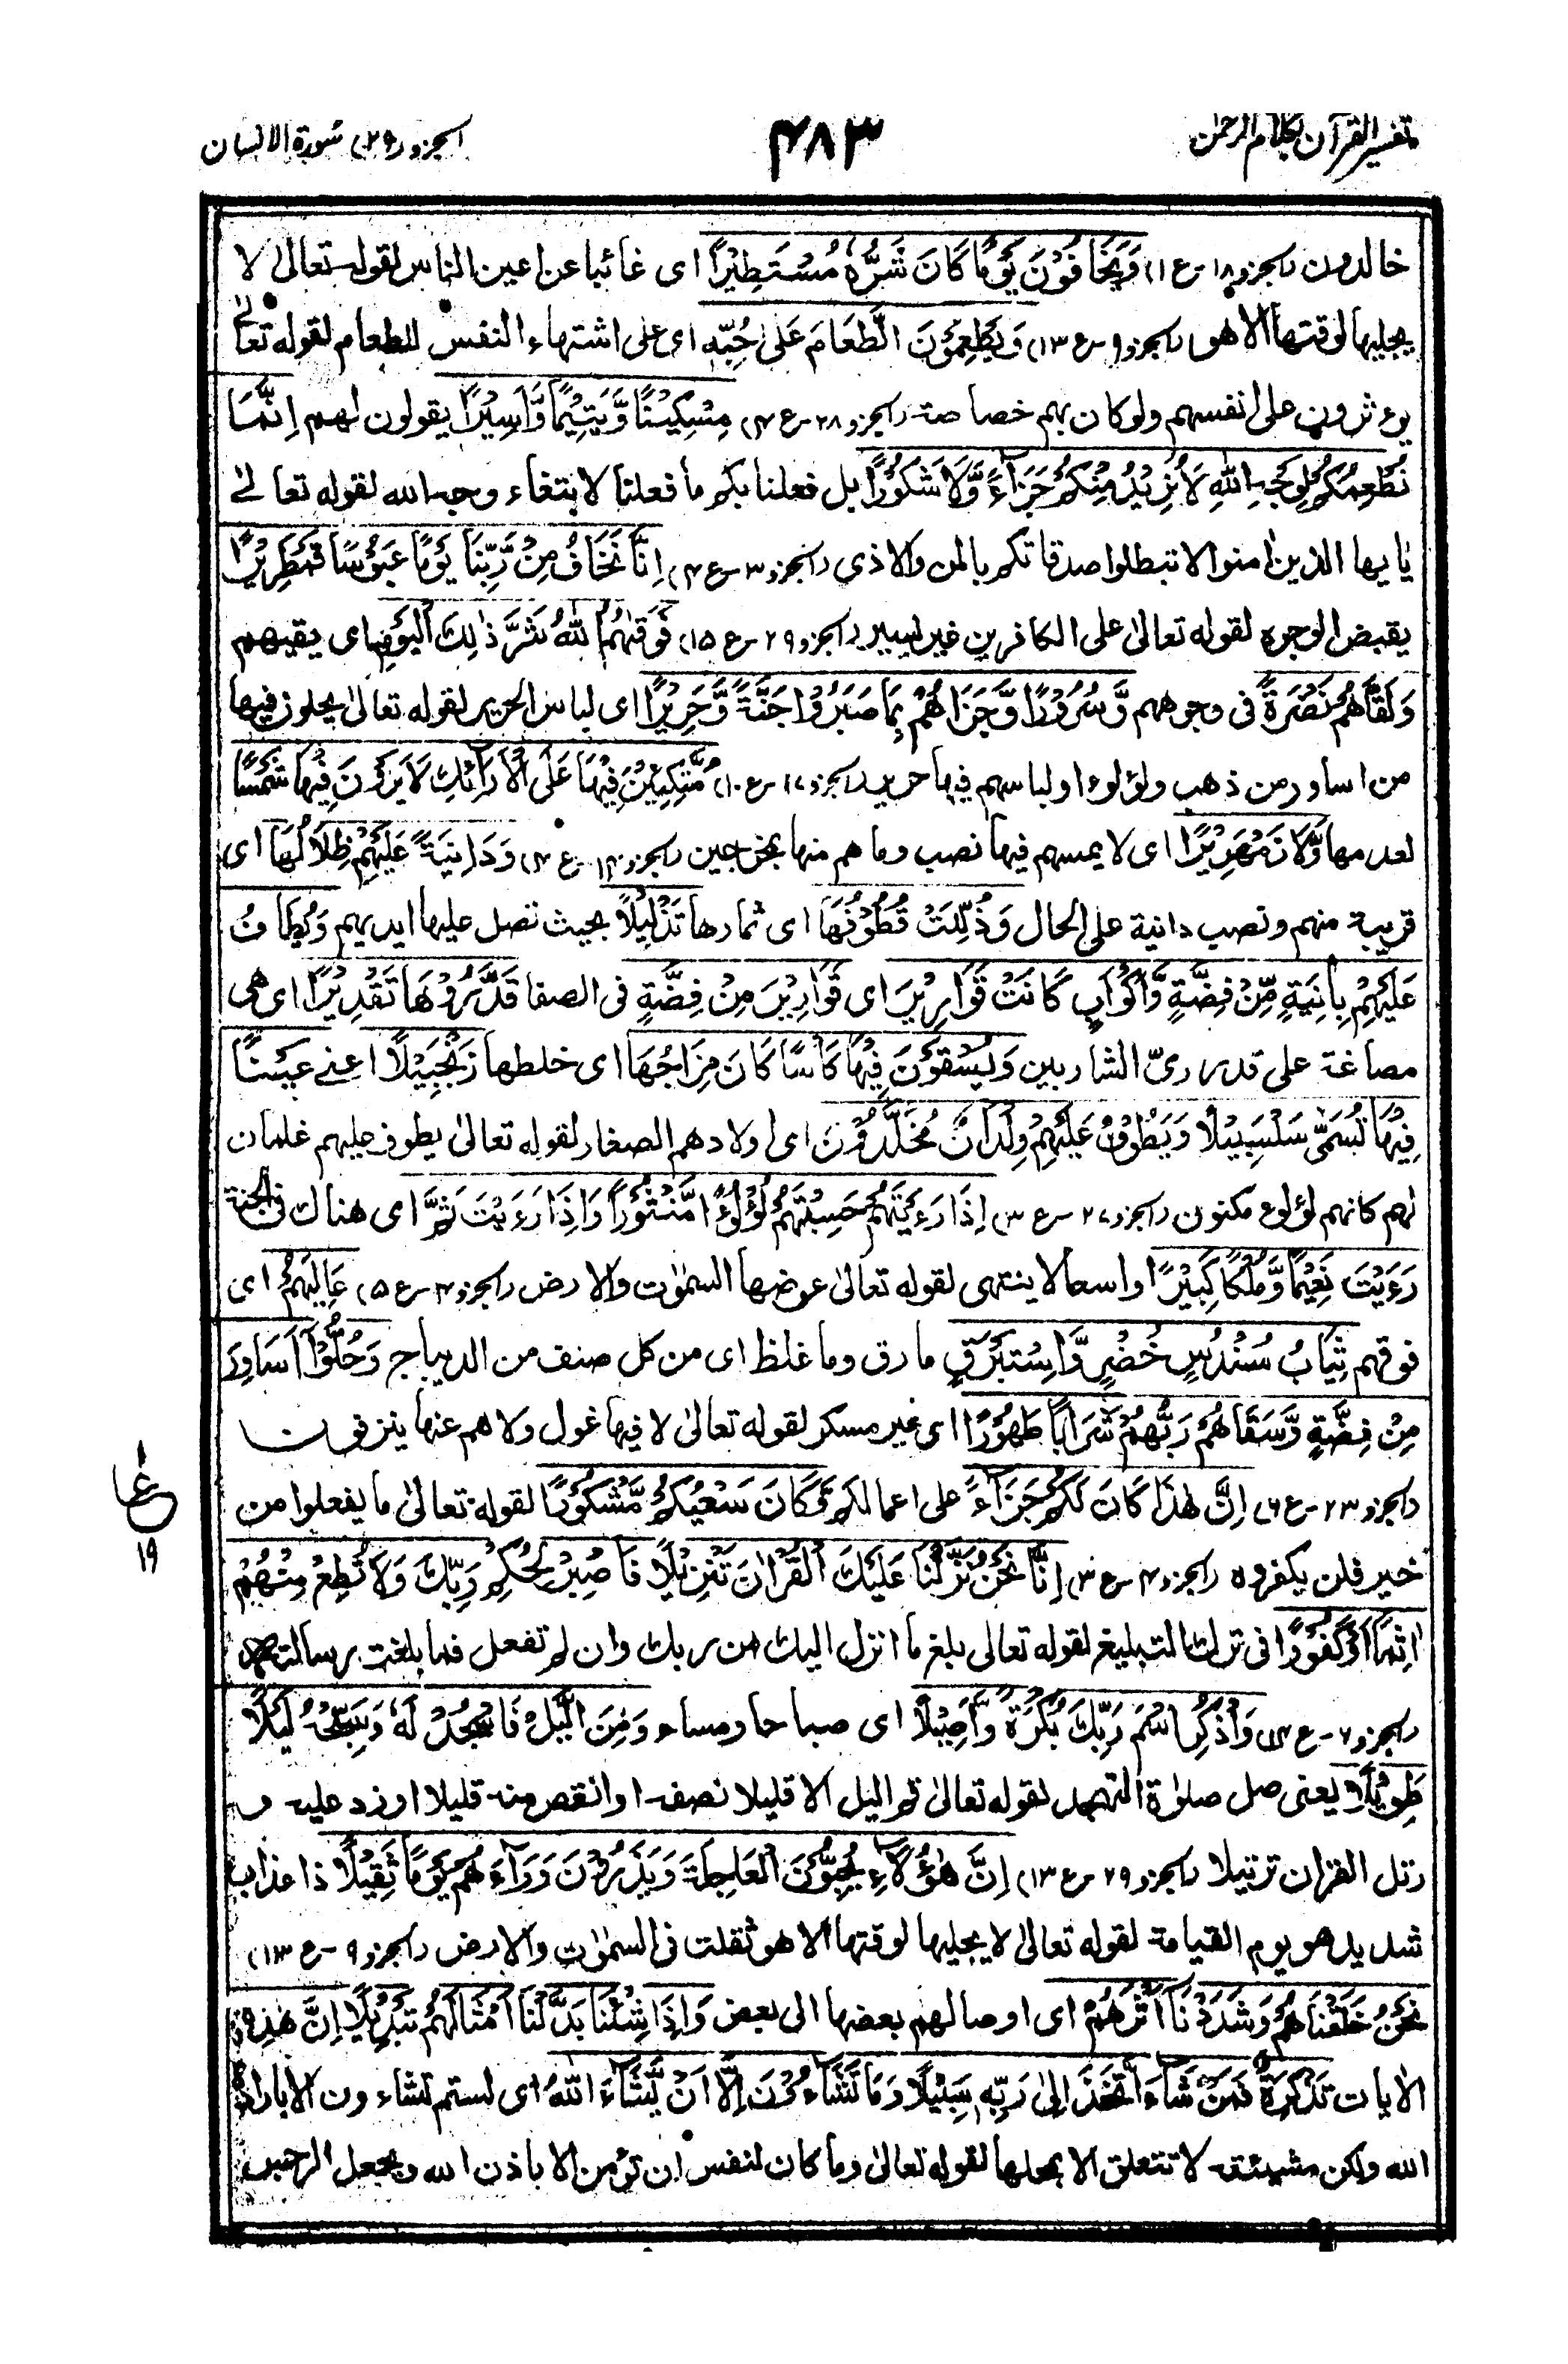 تفسير القرآن بكلام الرحمٰن
۴۸۳
الجزو (۲۹) سُورة الانسان
خالدون (الجزو ۱۸-ع۱) وَيَخَافُوْنَ يَوْمًا كَانَ شَرُّهٗ مُسْتَطِيْرًا اى غائبا عن اعين الناس لقوله تعالى لا
يجليها لوقتها الا هو (الجزو ۹-ع۱۳) وَيُطْعِمُوْنَ الطَّعَامَ عَلٰى حُبِّهٖ اى على اشتهاء النفس للطعام لقوله تعالىٰ
يوءثرون على انفسهم ولو كان بهم خصاصة (الجزو ۲۸-ع۴) مِسْكِيْنًا وَّيَتِيْمًا وَّاَسِيْرًا يقولون لهم اِنَّمَا
نُطْعِمُكُمْ لِوَجْهِ اللّٰهِ لَا نُرِيْدُ مِنْكُمْ جَزَآءً وَّلَا شَكُوْرًا بل فعلنا بكم ما فعلنا لابتغاء وجه الله لقوله تعالىٰ
يٰايها الذين اٰمنوا لا تبطلوا صدقاتكم بالمن والاذى (الجزو ۳-ع۴) اِنَّا نَخَافُ مِنْ رَّبِّنَا يَوْمًا عَبُوْسًا قَمْطَرِيْرًا
يقبض الوجوه لقوله تعالىٰ على الكافرين غير يسير (الجزو ۲۹-ع۱۵) فَوَقٰىهُمُ اللّٰهُ شَرَّ ذٰلِكَ الْيَوْمِ اى يقيهم
وَلَقّٰىهُمْ نَضْرَةً فى وجوههم وَّسُرُوْرًا وَّجَزَاهُمْ بِمَا صَبَرُوْا جَنَّةً وَّحَرِيْرًا اى لباس الحرير لقوله تعالىٰ يحلون فيها
من اساور من ذهب ولؤلوءا ولباسهم فيها حرير (الجزو ۱۷-ع۱۰) مُّتَّكِئِيْنَ فِيْهَا عَلَى الْاَرَآئِكِ لَا يَرَوْنَ فِيْهَا شَمْسًا
لعدمها وَّلَا زَمْهَرِيْرًا اى لا يمسهم فيها نصب وما هم منها بمخرجين (الجزو ۱۴-ع۴) وَدَانِيَةً عَلَيْهِمْ ظِلَالُهَا اى
قريبة منهم ونصب دانية على الحال وَذُلِّلَتْ قُطُوْفُهَا اى ثمارها تَذْلِيْلًا بحيث تصل عليها ايديهم وَيُطَافُ
عَلَيْهِمْ بِاٰنِيَةٍ مِّنْ فِضَّةٍ وَّاَكْوَابٍ كَانَتْ قَوَارِيْرَ اى قَوَارِيْرَ مِنْ فِضَّةٍ فى الصفا قَدَّرُوْهَا تَقْدِيْرًا اى هى
مصاغة على قدر رىّ الشاربين وَيُسْقَوْنَ فِيْهَا كَاْسًا كَانَ مِزَاجُهَا اى خلطها زَنْجَبِيْلًا اعنے عَيْنًا
فِيْهَا تُسَمّٰى سَلْسَبِيْلًا وَيَطُوْفُ عَلَيْهِمْ وِلْدَانٌ مُّخَلَّدُوْنَ اى اولادهم الصغار لقوله تعالىٰ يطوف عليهم غلمان
لهم كانهم لؤلوء مكنون (الجزو ۲۷-ع۳) اِذَا رَءَيْتَهُمْ حَسِبْتَهُمْ لُؤْلُؤًا مَّنْثُوْرًا وَاِذَا رَءَيْتَ ثَمَّ اى هناك فى الجنة
رَءَيْتَ نَعِيْمًا وَّمُلْكًا كَبِيْرًا واسعا لا ينتهى لقوله تعالىٰ عرضها السمٰوٰت والارض (الجزو ۴-ع۵) عَالِيَهُمْ اى
فوقهم ثِيَابُ سُنْدُسٍ خُضْرٍ وَّاِسْتَبْرَقٍ ما رق وما غلظ اى من كل صنف من الديباج وَحُلُّوْٓا اَسَاوِرَ
مِنْ فِضَّةٍ وَّسَقَاهُمْ رَبُّهُمْ شَرَابًا طَهُوْرًا اى غير مسكر لقوله تعالىٰ لا فيها غول ولا هم عنها ينزفون
(الجزو ۲۳-ع۶) اِنَّ هٰذَا كَانَ لَكُمْ جَزَآءً على اعمالكم وَّكَانَ سَعْيُكُمْ مَّشْكُوْرًا لقوله تعالىٰ ما يفعلوا من
ع
۱۹
خير فلن يكفروه (الجزو ۴-ع۳) اِنَّا نَحْنُ نَزَّلْنَا عَلَيْكَ الْقُرْاٰنَ تَنْزِيْلًا فَاصْبِرْ لِحُكْمِ رَبِّكَ وَلَا تُطِعْ مِنْهُمْ
اٰثِمًا اَوْ كَفُوْرًا فى ترك التبليغ لقوله تعالى بلغ ما انزل اليك من ربك وان لم تفعل فما بلغت رسالته
(الجزو ۶-ع۱۴) وَاذْكُرِ اسْمَ رَبِّكَ بُكْرَةً وَّاَصِيْلًا اى صباحا ومساء وَمِنَ الَّيْلِ فَاسْجُدْ لَهٗ وَسَبِّحْهُ لَيْلًا
طَوِيْلًا يعنى صل صلوٰة التهجد لقوله تعالىٰ قم اليل الا قليلا نصفه او انقص منه قليلا او زد عليه و
رتل القراٰن ترتيلا (الجزو ۲۹-ع۱۳) اِنَّ هٰؤُلَآءِ يُحِبُّوْنَ الْعَاجِلَةَ وَيَذَرُوْنَ وَرَآءَهُمْ يَوْمًا ثَقِيْلًا ذا عذاب
شديد هو يوم القيامة لقوله تعالىٰ لا يجليها لوقتها الا هو ثقلت فى السمٰوٰت والارض (الجزو ۹-ع۱۳)
نَحْنُ خَلَقْنَاهُمْ وَشَدَدْنَآ اَسْرَهُمْ اى اوصالهم بعضها الى بعض وَاِذَا شِئْنَا بَدَّلْنَآ اَمْثَالَهُمْ تَبْدِيْلًا اِنَّ هٰذِهٖ
الاٰيات تَذْكِرَةٌ فَمَنْ شَآءَ اتَّخَذَ اِلٰى رَبِّهٖ سَبِيْلًا وَمَا تَشَآءُوْنَ اِلَّآ اَنْ يَّشَآءَ اللّٰهُ اى لستم تشاءون الا بارادة
الله ولكن مشيئته لا تتعلق الا بمحلها لقوله تعالىٰ وما كان لنفس ان تؤمن الا باذن الله ويجعل الرجس